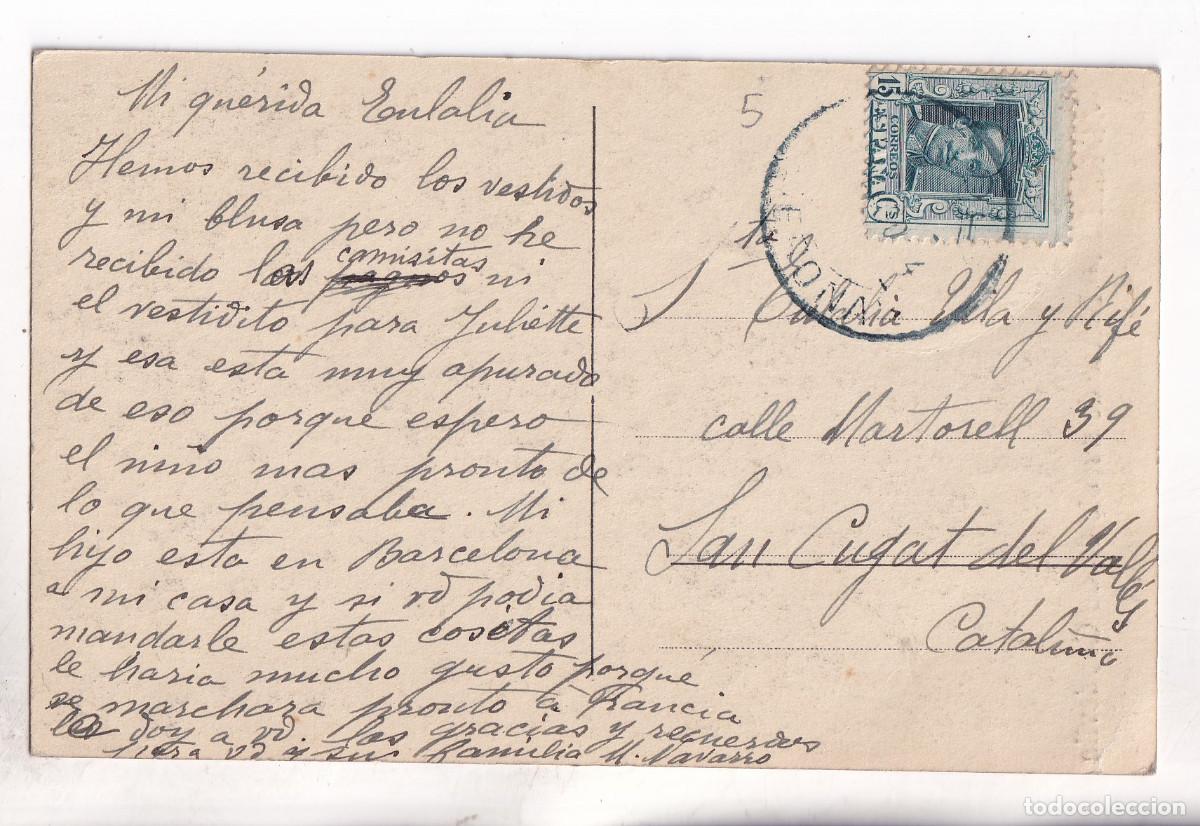 Mi querida Eulalia
Hemos recibido los vestidos
y mi blusa pero no he
recibido las camisitas ni
el vestidito para Juliette
y esa esta muy apurado
de eso porque espero
el niño mas pronto de
lo que pensaba. Mi
hijo esta en Barcelona
a mi casa y si vd podia
mandarle estas cositas
le haria mucho gusto porque
se marchara pronto a Francia
les doy a vd. las gracias y recuerdos
para vd y su familia M. Navarro
5
15
ESPAÑA
CORREOS
Cs
Eulalia Villa y Rifé
calle Martorell 39
San Cugat del Vallés
Cataluña
todocoleccion